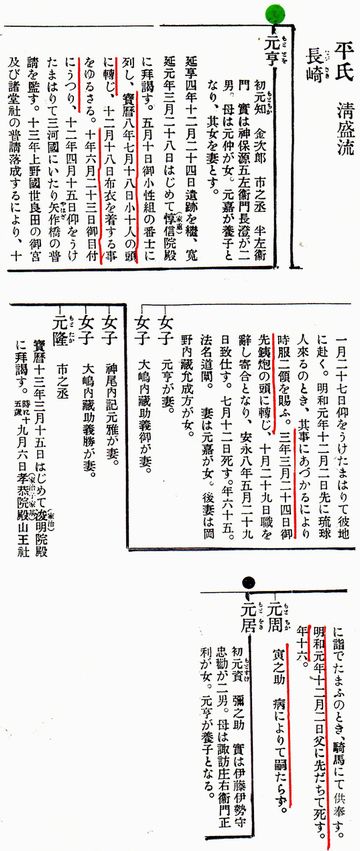 平氏 清盛流
長崎
元亨
初元知 金次郎 市之丞 半左衞
門 實は神保源五左衞門長澄が二
男。母は元仲が女。元嘉が養子と
なり、其女を妻とす。
延享四年十二月二十四日遺跡を繼、寬
延元年三月二十八日はじめて惇信院殿(家重)
に拜謁す。五月十日御小性組の番士に
列し、寶曆八年七月十八日小十人の頭
に轉じ、十二月十八日布衣を着する事
をゆるさる。十年六月二十三日御目付
にうつり、十二年四月十五日仰をうけ
たまはりて三河國にいたり矢作橋の普
請を監す。十三年上野國世良田の御宮
及び諸堂社の普請落成するにより、十
一月二十七日仰をうけたまはりて彼地
に赴く。明和元年十二月二日先に琉球
人來るのとき、其事にあづかるにより
時服二領を賜ふ。三年三月二十四日御
先鐵炮の頭に轉じ、十月二十九日職を
辭し寄合となり、安永八年五月二十九
日致仕す。七月十二日死す。年六十五。
法名道閑。妻は元嘉が女。後妻は岡
野内藏允成方が女。
女子 元亨が妻。
女子 大嶋内藏助義御が妻。
女子 神尾内記元雅が妻。
女子 大嶋内藏助義勝が妻。
元隆 市之丞
寶曆十三年三月十五日はじめて浚明院殿(家治)
に拜謁す。時に十五歲 九月六日孝恭院殿(家治・家基)山王社
に詣でたまふのとき、騎馬にて供奉す。
明和元年十二月二日父に先だちて死す。
年十六。
元周 寅之助 病によりて嗣たらず。
元居
初元資 彌之助 實は伊藤伊勢守
忠勸が二男。母は諏訪庄右衞門正
利が女。元亨が養子となる。